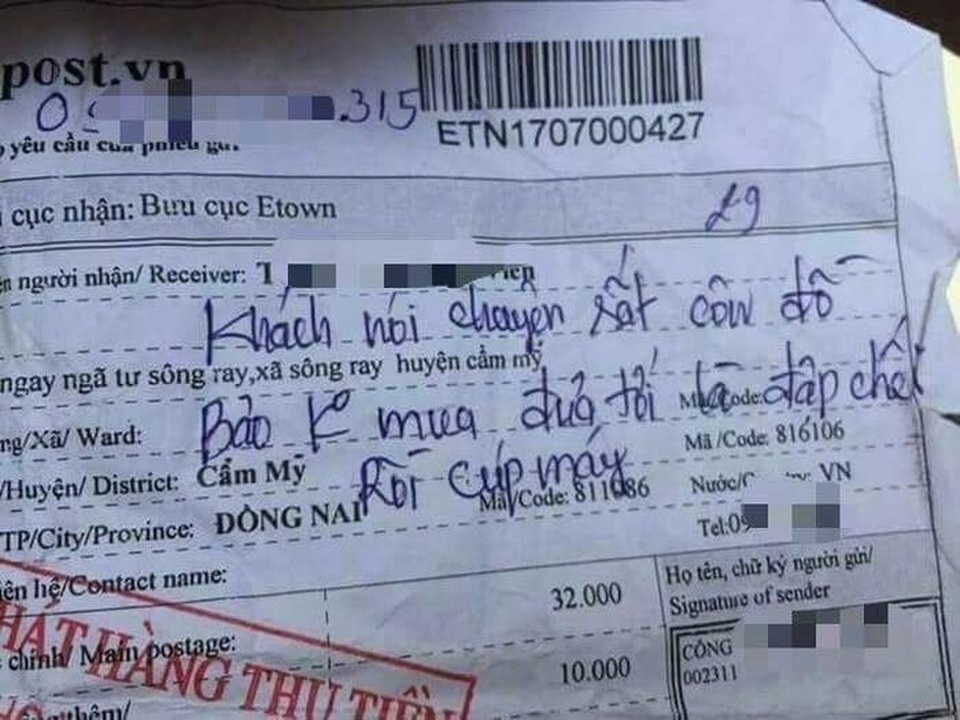 post.vn
.315
ETN1707000427
yêu cầu của phiếu gửi.
cục nhận: Bưu cục Etown
29
người nhận/ Receiver: T
Khách nói chuyện rất côn đồ
ngay ngã tư sông ray,xã sông ray huyện cẩm mỹ
Bảo K mua đưa tới là đập chết
/Xã/ Ward:
Mã /Code: 816106
Rồi cúp máy
/Huyện/ District: Cẩm Mỹ
Mã/Code: 811086
Nước/ VN
TP/City/Province: ĐỒNG NAI
Tel:09
hệ/Contact name:
32.000
Họ tên, chữ ký người gửi/
Signature of sender
chính/ Main postage:
10.000
CÔNG
002311
PHÁT HÀNG THU TIỀN
thêm/